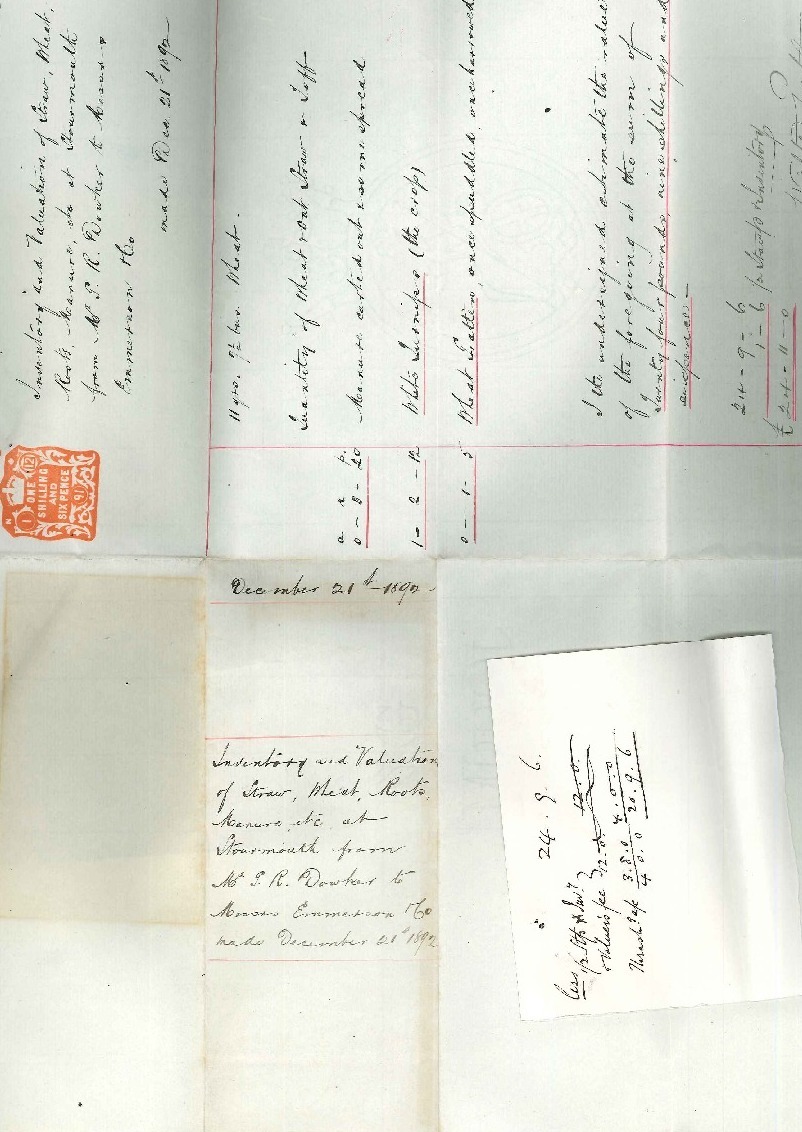 Inventory and Valuation of Straw, Wheat,
Roots, Manure, etc at Stourmouth
from Mr G. R. Dowker to Messrs
Emmerson & Co
made Dec. 21st 1892
ONE
SHILLING
AND
SIX PENCE
11 qrs. 7½ bus. Wheat.
Quantity of Wheat & Oat Straw & Toff
a r p.
0 - 3 - 20 Manure carted out & some spread
1 - 2 - 12 White Turnips (the crop)
0 - 1 - 5 Wheat Gratten, once spuddled, once harrowed
I the undersigned estimate the value
of the foregoing at the sum of
Twenty four pounds nine shillings and
sixpence,
24 - 9 - 6
1 - 6 ½ Stamp & Inventory
£ 24 - 11 - 0
December 21st 1892
Inventory and Valuation
of Straw, Wheat, Roots,
Manure, etc at
Stourmouth from
Mr G. R. Dowker to
Messrs Emmerson & Co
made December 21st 1892
24. 9. 6.
Less
Valuers fee 12. 0. 12. 0.
3. 8. 0 4. 0. 0
4 0. 0 20. 9. 6